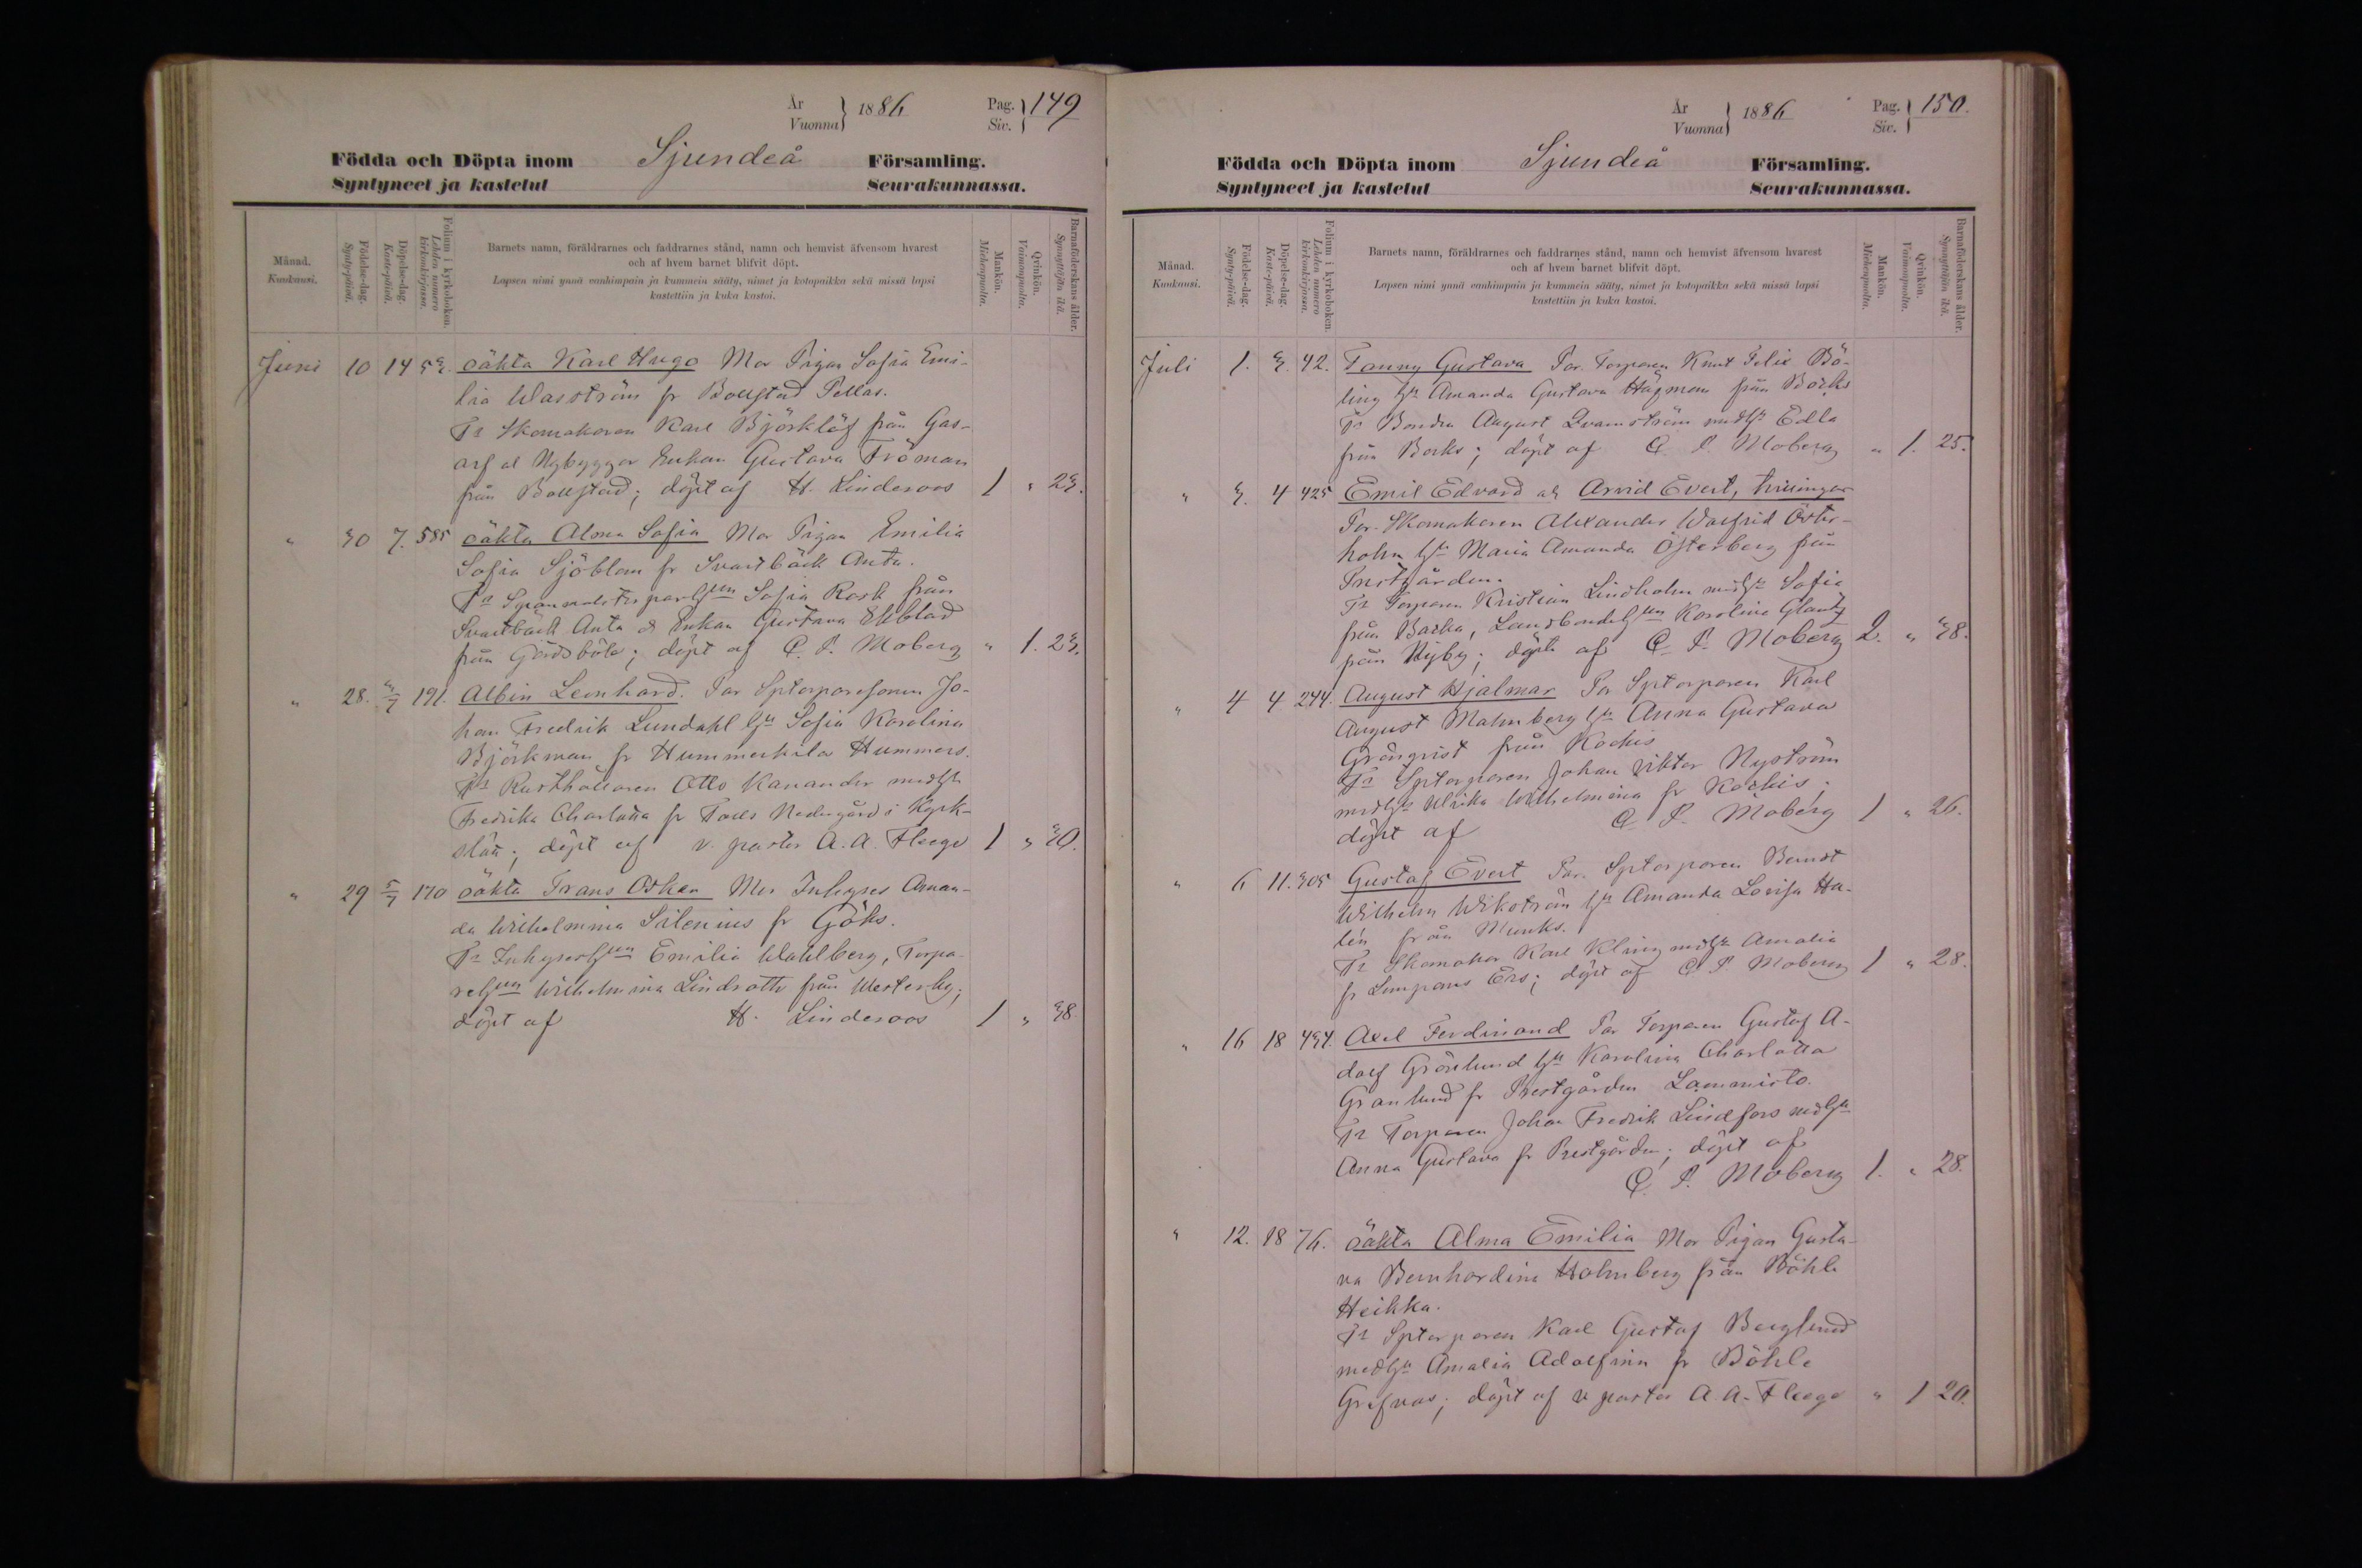 År
Vuonna
1886
Pag.
Siv.
149
Födda och Döpta inom Sjundeå Församling.
Syntyneet ja kastetut Seurakunnassa.
Månad.
Kuukausi.
Födelse-dag.
Synty-päivä.
Döpelse-dag.
Kaste-päivä.
Folium i kyrkoboken.
Lehden numero kirkonkirjassa.
Barnets namn, föräldrarnes och faddrarnes stånd, namn och hemvist äfvensom hvarest
och af hvem barnet blifvit döpt.
Lapsen nimi ynnä vanhimpain ja kummein sääty, nimet ja kotopaikka sekä missä lapsi
kastettiin ja kuka kastoi.
Mankön.
Miehenpuolta.
Qvinkön.
Vaimonpuolta.
Barnaföderskans ålder.
Synnyttäjän ikä.
Juni 10 14 oäkta Karl Hugo Mor Pigan Sofia Emi-
lia Wasström fr Bollstad Pellas.
Fr Skomakaren Karl Björklöf från Gas-
arf Nybyggar Enkan Gustava Fröman
från Bollstad; döpt af H. Linderoos 1 " 23.
" 30 7. 585 oäkta Alma Sofia Mor Pigan Emilia
Sofia Sjöblom fr Svartbäck Anta.
Fr Sofia Rosk från
Svartbäck Anta & Enkan Gustava Ekblad
från Gårdsböle; döpt af C. P. Moberg " 1. 23.
" 28. 3/7 191. Albin Leonhard. Par Sptorparesonen Jo-
han Fredrik Lundahl hu Sofia Karolina
Björkman fr Hummerkila Hummers.
Fr Rusthållaren Otto Kanander med hu
Fredrika Charlotta fr Nedergård i Kyrk-
slätt; döpt af v. pastor A. A. Fleege 1 " 30.
" 29 5/7 170 oäkta Frans Oskar Mor Inhyses Aman-
da Wilhelmina Silenius fr Göks.
Fr Emilia Wahlberg, Torpa-
Wilhelmina Lindroth från Westerby;
döpt af H. Linderoos 1 " 38
År
Vuonna
1886
Pag.
Siv.
150.
Födda och Döpta inom Sjundeå Församling.
Syntyneet ja kastetut Seurakunnassa.
Månad.
Kuukausi.
Födelse-dag.
Synty-päivä.
Döpelse-dag.
Kaste-päivä.
Folium i kyrkoboken.
Lehden numero kirkonkirjassa.
Barnets namn, föräldrarnes och faddrarnes stånd, namn och hemvist äfvensom hvarest
och af hvem barnet blifvit döpt.
Lapsen nimi ynnä vanhimpain ja kummein sääty, nimet ja kotopaikka sekä missä lapsi
kastettiin ja kuka kastoi.
Mankön.
Miehenpuolta.
Qvinkön.
Vaimonpuolta.
Barnaföderskans ålder.
Synnyttäjän ikä.
Juli 1. 3. 42. Fanny Gustava Par. Torparen Knut Felix Bö-
ling hu Amanda Gustava Hägman från Backs
Fr Bonden August Qvarnström med hu Edla
från Backs; döpt af C. P. Moberg " 1. 25.
" 3. 4 425 Emil Edvard & Arvid Evert, tvillingar
Par. Skomakaren Alexander Walfrid Öster-
holm hu Maria Amanda Österberg från
Prestgården.
Fr Torparen Kristian Lindholm med hu Sofia
från Backa, Karolina Glantz
från Nyby; döpt af C. P. Moberg 2. " 38.
" 4 4 244. August Hjalmar Par Sptorparen Karl
August Malmberg hu Anna Gustava
Grönqvist från Kockis
Fr Sptorparen Johan Viktor Nyström
med hu Ulrika Wilhelmina fr Kockis;
döpt af C. P. Moberg 1 " 26.
" 6 11. 305 Gustaf Evert Par. Sptorparen Berndt
Wilhelm Wikström hu Amanda Lovisa Ha-
lén från Munks.
Fr Skomakar Karl Kling med hu Amalia
fr Lempans Ers; döpt af C. P. Moberg 1 " 28.
" 16 18 434. Axel Ferdinand Par Torparen Gustaf A-
dolf Grönlund hu Karolina Charlotta
Granlund fr Prestgården Lammisto.
Fr Torparen Johan Fredrik Lindfors med hu
Anna Gustava fr Prestgården; döpt af
C. P. Moberg 1. " 28.
" 12. 18 76. oäkta Alma Emilia Mor Pigan Gusta-
va Bernhardina Holmberg från Böhle
Heikka.
Fr Sptorparen Karl Gustaf Berglund
med hu Amalia Adolfina fr Böhle
Grefvas; döpt af v pastor A. A. Fleege " 1 20.